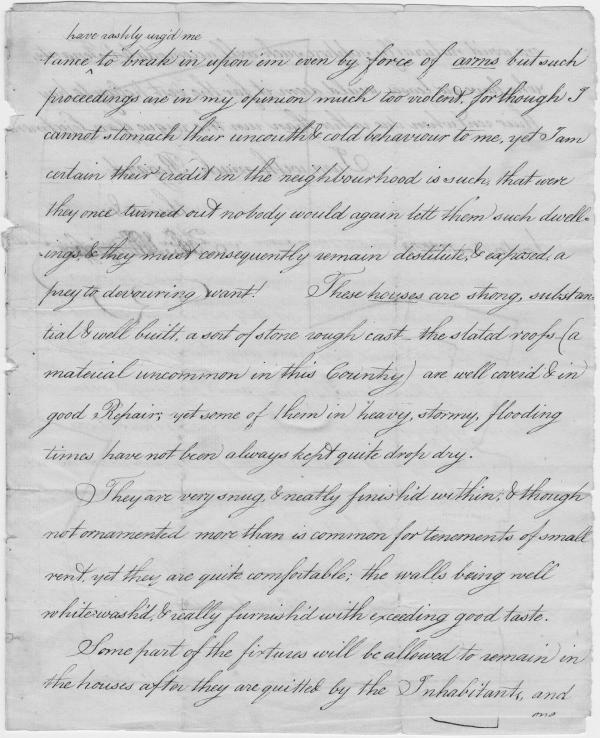 have rashly urg'd me
tance ^ to break in upon em even by force of arms but such
proceedings are in my opinion much too violent, for though I
cannot stomach their uncouth & cold behaviour to me, yet I am
certain their credit in the neighbourhood is such, that were
they once turned out nobody would again lett them such dwell=
ings & they must consequently remain destitute, & exposed, a
prey to devouring want! These houses are strong, substan
tial & well built, a sort of stone rough cast - the slated roofs - (a
material uncommon in this Country) are well cover'd & in
good Repair; yet some of them in heavy, stormy, flooding
times have not been always kept quite drop dry.
They are very snug, & neatly finish'd within; & though
not ornamented more than is common for tenements of small
rent, yet they are quite comfortable; the walls being well
white-wash'd, & really furnish'd with exceeding good taste.
Some part of the fixtures will be allowed to remain in
the houses after they are quitted by the Inhabitants, and